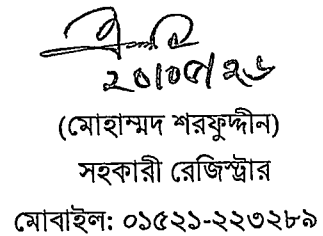 ২০/০৫/২৬
(মোহাম্মদ শরফুদ্দীন)
সহকারী রেজিস্ট্রার
মোবাইল: ০১৫২১-২২৩২৮৯